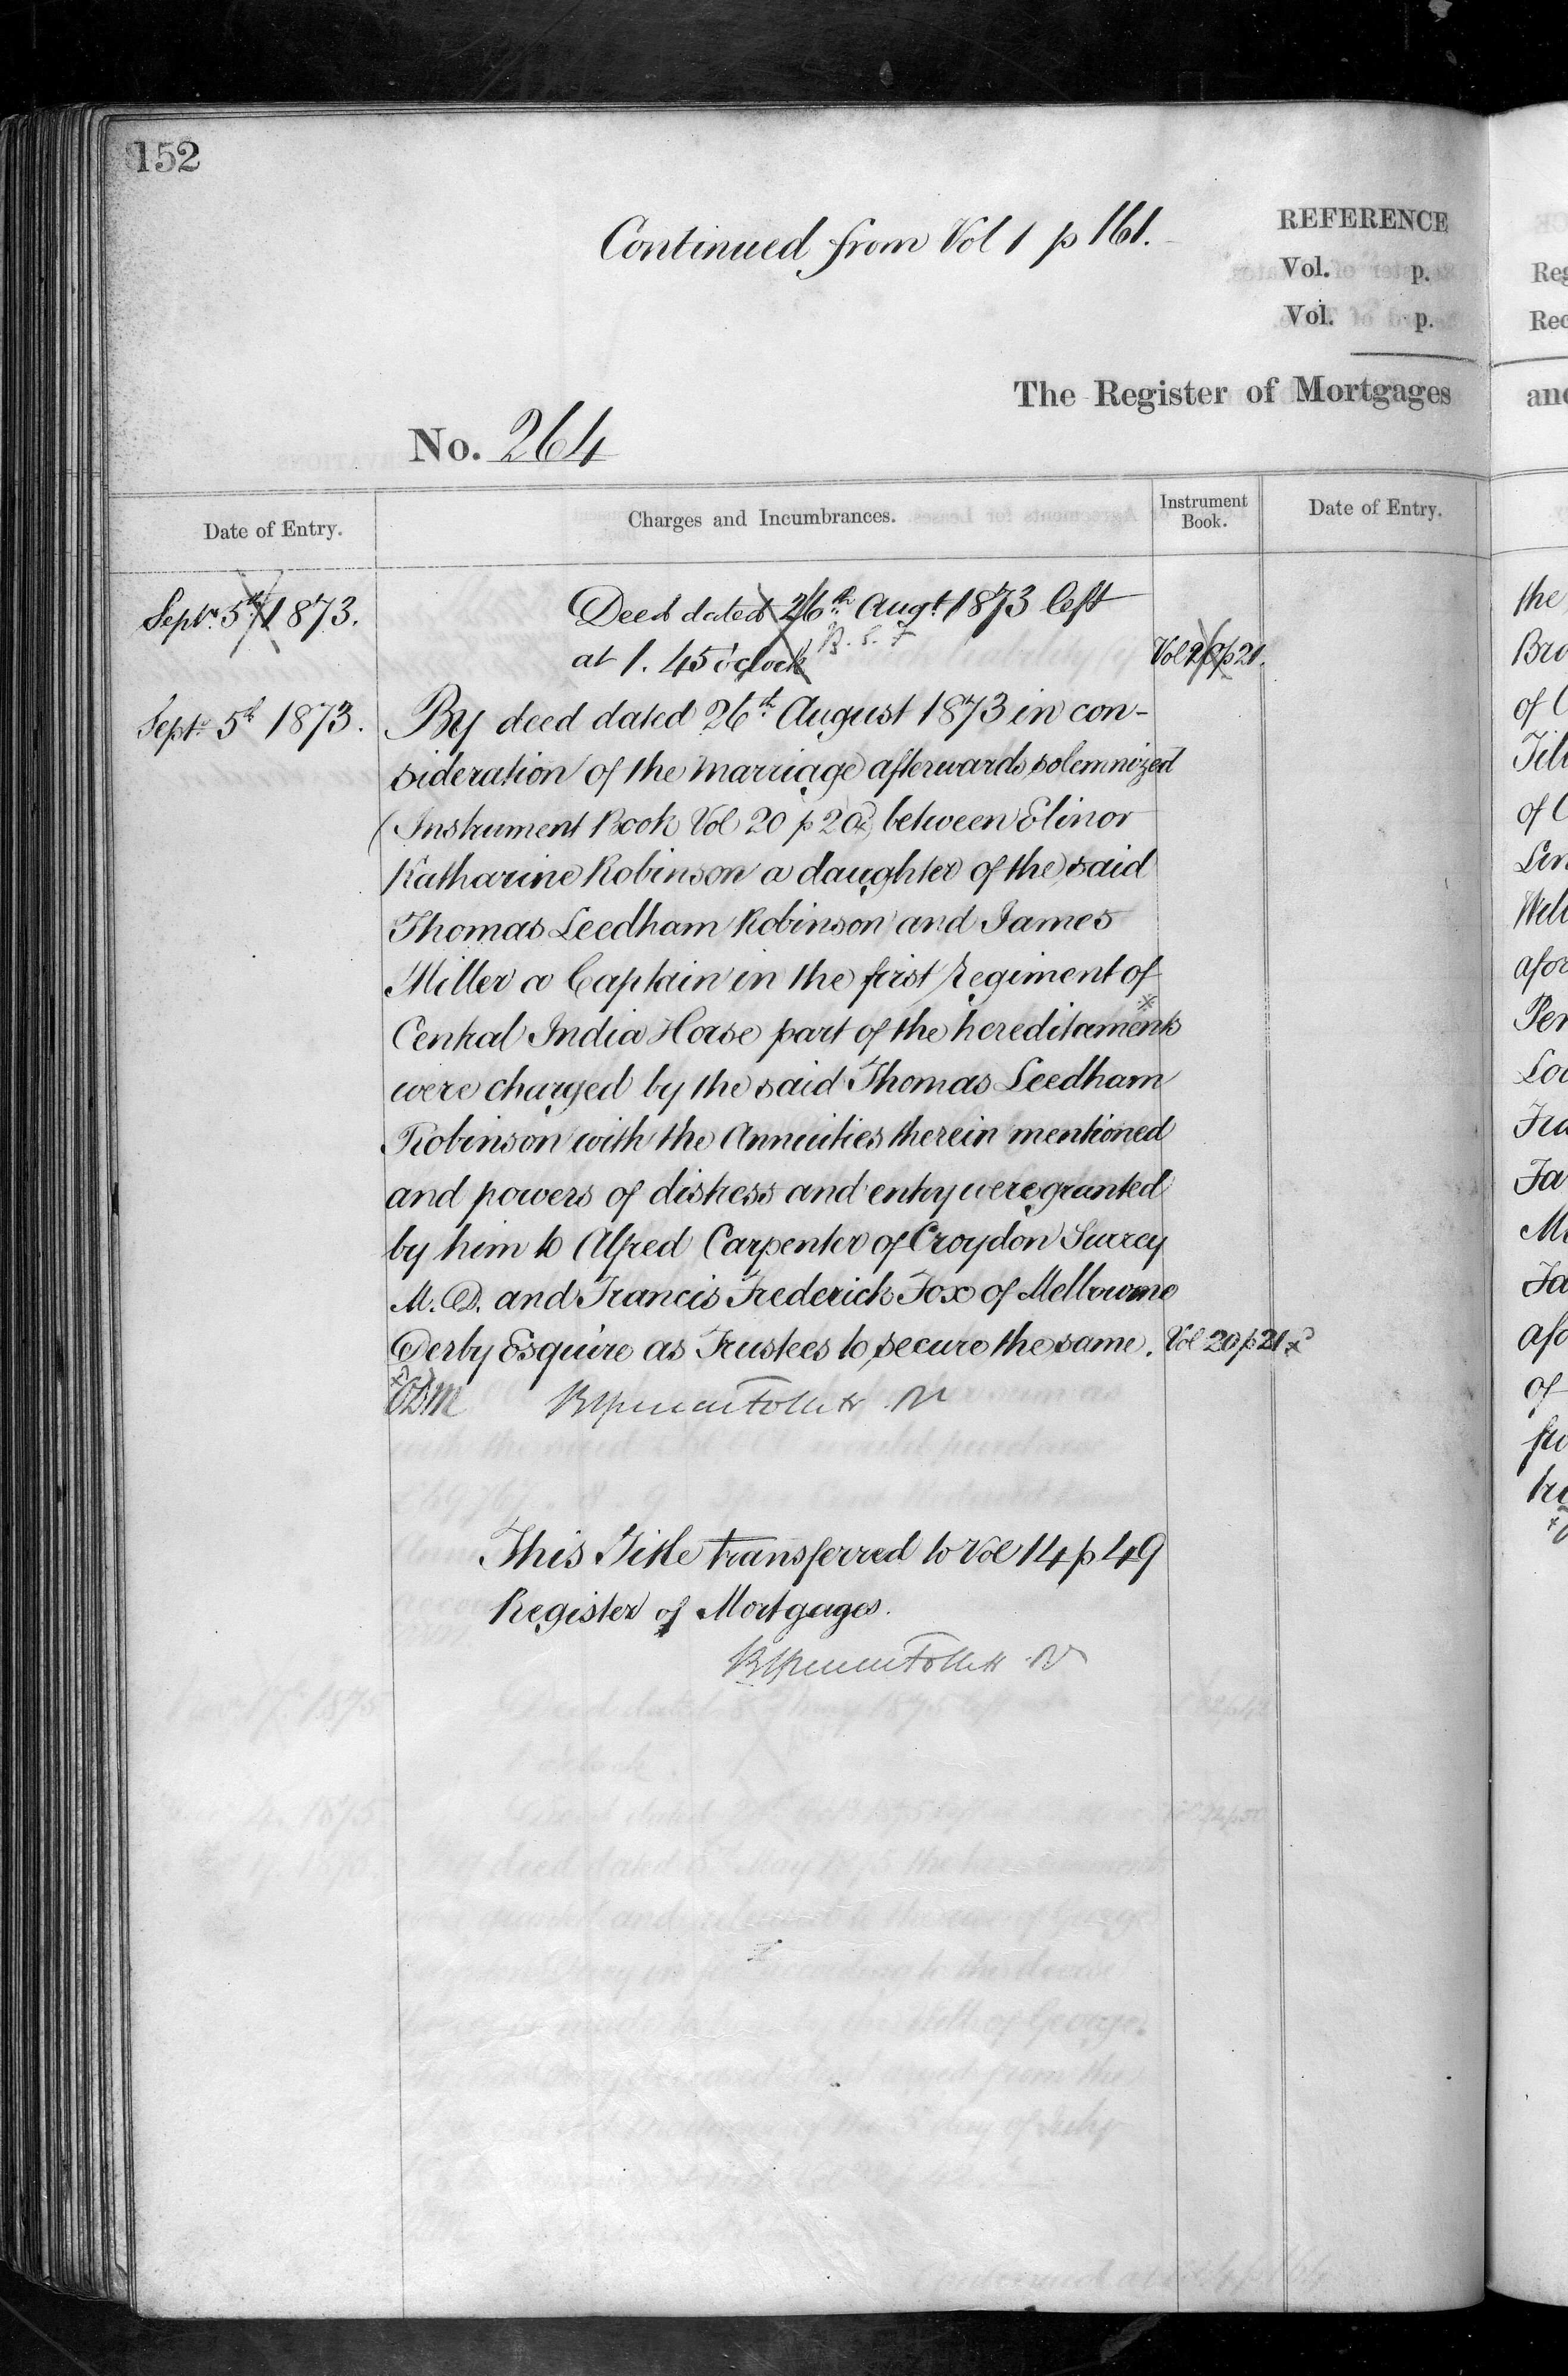 152
Continued from Vol 1 p 161.
REFERENCE
Vol. p.
Vol. p.
The Register of Mortgages
No. 264
Date of Entry.
Charges and Incumbrances.
Instrument Book.
Date of Entry.
Septr. 5th 1873.
Deed dated 26th Augt. 1873 left
at 1.45 o'clock
Vol 20 p 21.
Septr 5th 1873.
By deed dated 26th August 1873 in con-
sideration of the marriage afterwards solemnized
(Instrument Book Vol 20 p 20) between Elinor
Katharine Robinson a daughter of the said
Thomas Leedham Robinson and James
Miller a Captain in the first Regiment of
Central India Horse part of the hereditaments
were charged by the said Thomas Leedham
Robinson with the Annuities therein mentioned
and powers of distress and entry were granted
by him to Alfred Carpenter of Croydon Surrey
M.D. and Francis Frederick Fox of Melbourne
Derby Esquire as Trustees to secure the same. Vol 20 p 21
This Title transferred to Vol 14 p 49
Register of Mortgages.